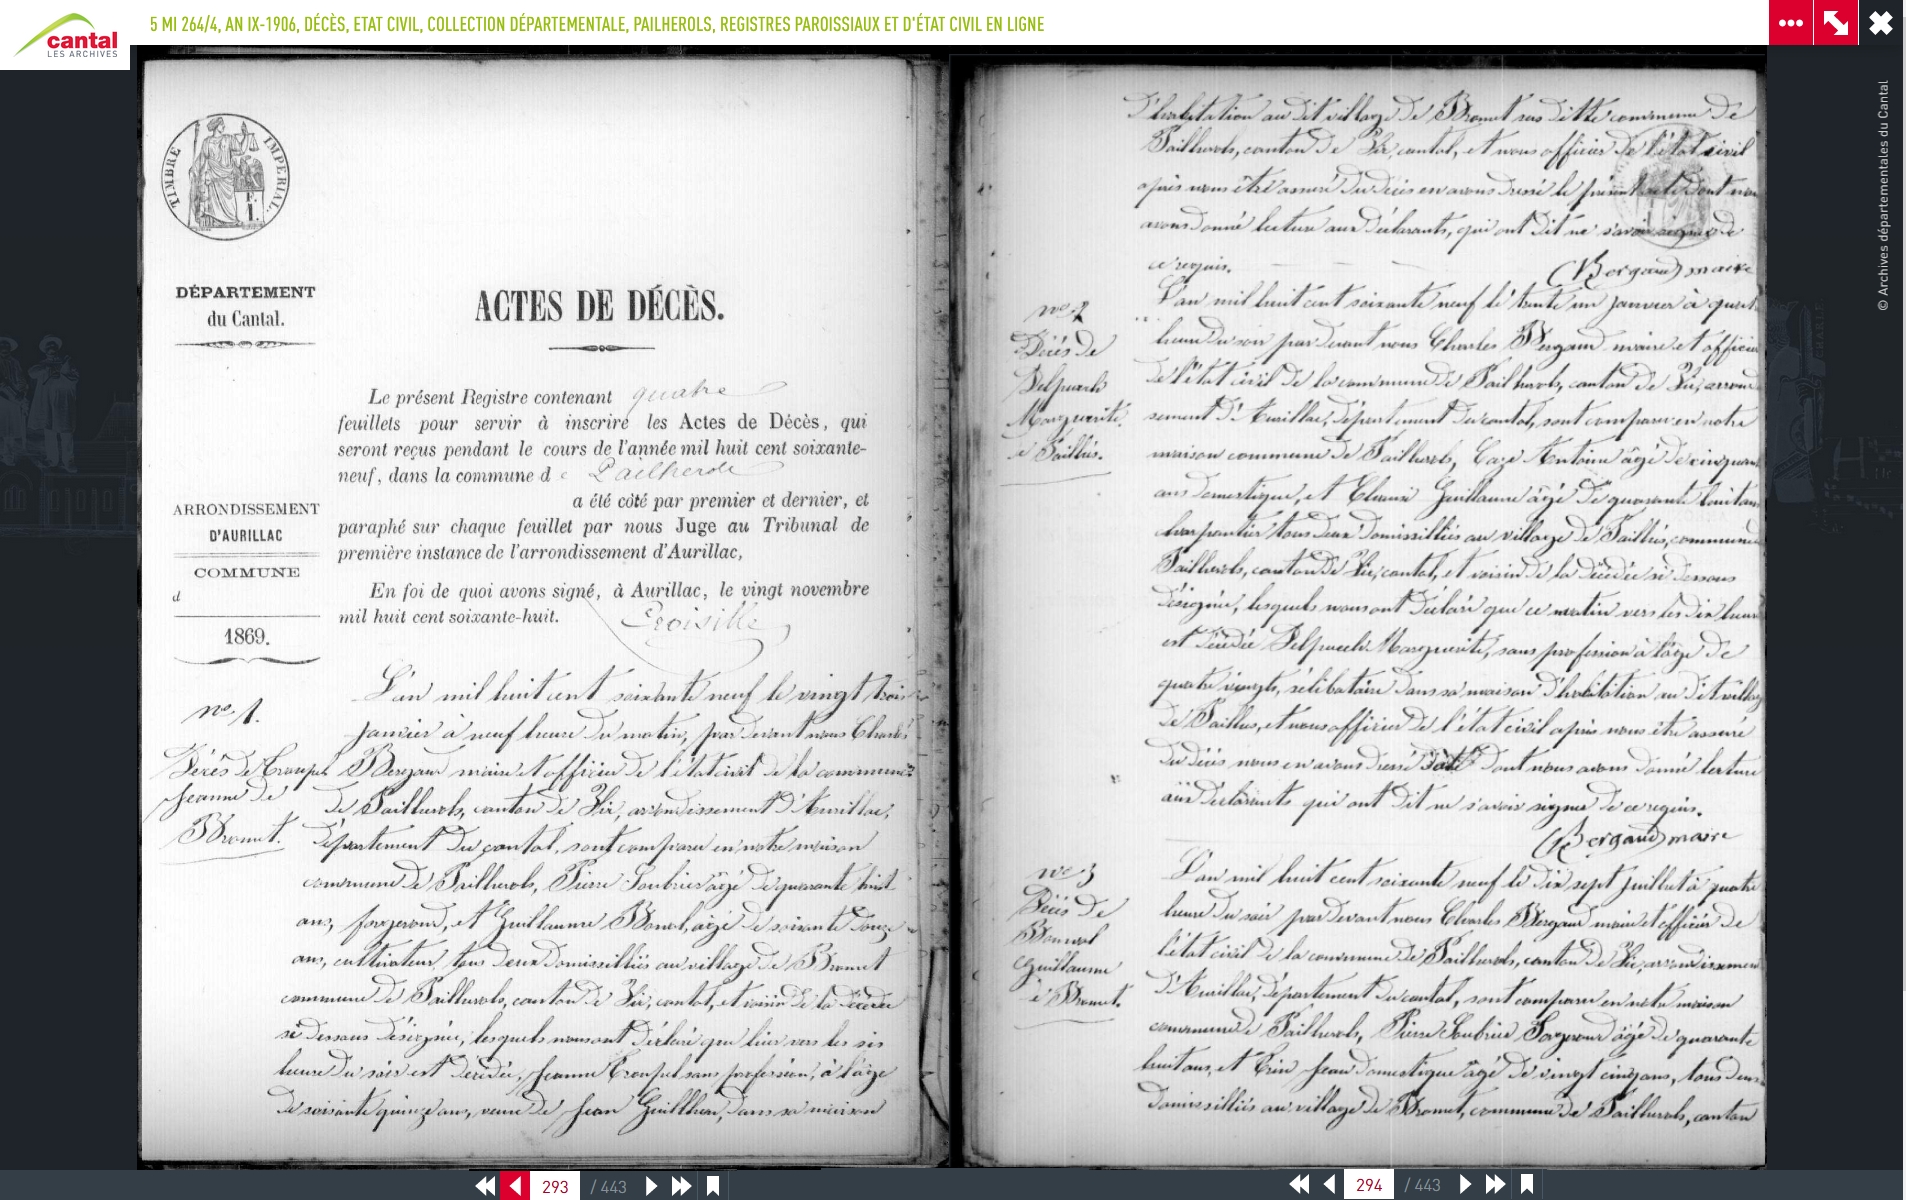 cantal
LES ARCHIVES
5 MI 264/4, AN IX-1906, DÉCÈS, ETAT CIVIL, COLLECTION DÉPARTEMENTALE, PAILHEROLS, REGISTRES PAROISSIAUX ET D'ÉTAT CIVIL EN LIGNE
© Archives départementales du Cantal
TIMBRE IMPERIAL
DÉPARTEMENT
du Cantal.
ACTES DE DÉCÈS.
Le présent Registre contenant quatre
feuillets pour servir à inscrire les Actes de Décès, qui
seront reçus pendant le cours de l'année mil huit cent soixante-
neuf, dans la commune d e Pailherols
a été côté par premier et dernier, et
paraphé sur chaque feuillet par nous Juge au Tribunal de
première instance de l'arrondissement d'Aurillac,
En foi de quoi avons signé, à Aurillac, le vingt novembre
mil huit cent soixante-huit.
ARRONDISSEMENT
D'AURILLAC
COMMUNE
d
1869.
no 1.
Décès de
Jeanne de
Bromet.
L'an mil huit cent soixante neuf le vingt trois
janvier à neuf heure du matin, par devant nous Charles
Bergaud maire et officier de l'état civil de la commune
de Pailherols, canton de Vic, arrondissement d'Aurillac,
département du cantal, sont comparu en notre maison
commune de Pailherols, Pierre Soubrier âgé de quarante huit
ans, forgerond, et Guillaume Bonal, âgé de soixante douze
ans, cultivateur, tous deux domissilliés au village de Bromet
commune de Pailherols, canton de Vic, cantal, et voisin de la décédée
si dessous désignée, lesquels nous ont déclaré que hier vers les sis
heure du soir est décédée, Jeanne sans profession, à l'âge
de soisante quinze ans, veuve de Jean dans sa maison
d'habitation au dit village de Bromet sus ditte commune de
Pailherols, canton de Vic, cantal, et nous officier de l'état civil
après nous être assuré du décès en avons dressé le présent acte dont nous
avons donné lecture aux déclarants, qui ont dit ne savoir signer de
ce requis.
Bergaud maire
no 2
Décès de
Delpuech
Marguerite,
L'an mil huit cent soixante neuf le trente un janvier à quatre
heure du soir par devant nous Charles Bergaud maire et officier
de l'état civil de la commune de Pailherols, canton de Vic, arrondi
sement d'Aurillac, département du cantal, sont comparu en notre
maison commune de Pailherols, Antoine âgé de cinquante
ans domestique, et Guillaume âgé de quarante huit ans
charpentier tous deux domissilliés au village de commune
Pailherols, canton de Vic, cantal, et voisin de la décédée si dessous
désignée, lesquels nous ont déclaré que ce matin vers les dix heure
est décédée Delpuech Marguerite, sans profession à l'âge de
quatre vingts, sélibataire dans sa maison d'habitation au dit village
de et nous officier de l'état civil après nous être assuré
du décès nous en avons dressé dont nous avons donné lecture
aux déclarants qui ont dit ne savoir signer de ce requis.
Bergaud maire
no 3
Décès de
Guillaume
Bromet.
L'an mil huit cent soixante neuf le dix sept juillet à quatre
heure du soir par devant nous Charles Bergaud maire et officier de
l'état civil de la commune de Pailherols, canton de Vic, arrondissement
d'Aurillac, département du cantal, sont comparu en notre maison
commune de Pailherols, Pierre Soubrier forgerond âgé de quarante
huit ans, et Jean domestique âgé de vingt cinq ans, tous deux
domissilliés au village de Bromet, commune de Pailherols, canton
293 / 443
294 / 443